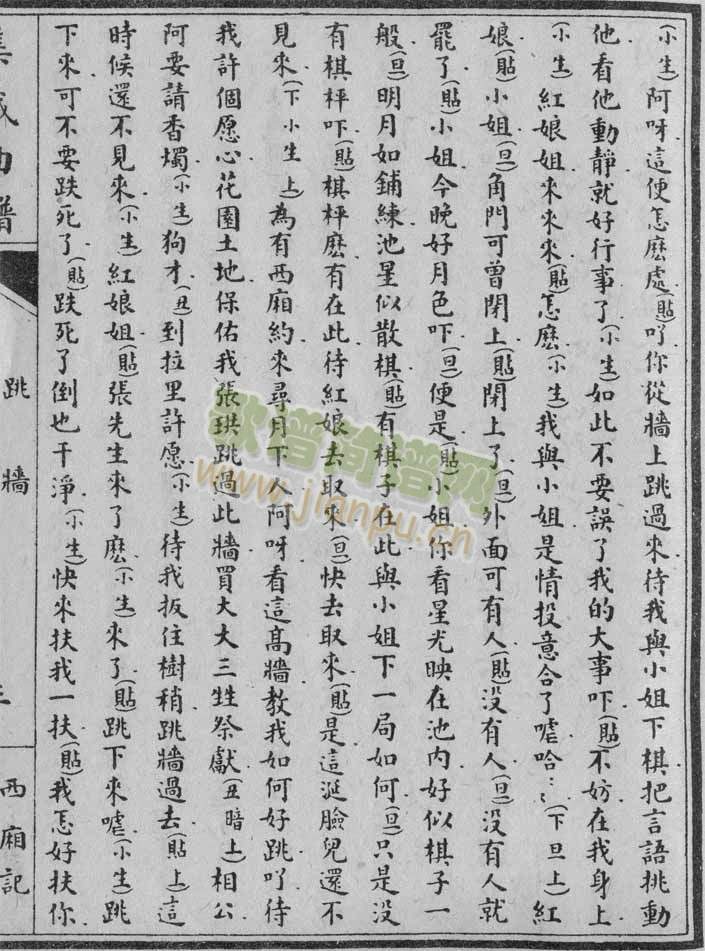 (小生)阿呀這便怎麽處(貼)吖你從牆上跳過來待我與小姐下棋把言語挑動
他看他動靜就好行事了(小生)如此不要誤了我的大事吓(貼)不妨在我身上
(小生)紅娘姐來來來(貼)怎麽(小生)我與小姐是情投意合了嘘哈⋯(下旦上)紅
娘(貼)小姐(旦)角門可曾閉上(貼)閉上了(旦)外面可有人(貼)没有人(旦)没有人就
罷了(貼)小姐今晚好月色吓(旦)便是(貼)小姐你看星光映在池内好似棋子一
般(旦)明月如鋪練池星似散棋(貼)有棋子在此與小姐下一局如何(旦)只是没
有棋枰吓(貼)棋枰麽有在此待紅娘去取來(旦)快去取來(貼)是這涎臉兒還不
見來(下小生上)為有西廂約來尋月下人阿呀看這高牆教我如何好跳吖待
我許個愿心花園土地保佑我張珙跳過此牆買大大三牲祭獻(丑暗上)相公
阿要請香燭(小生)狗才(丑)到拉里許愿(小生)待我扳住樹稍跳牆過去(貼上)這
時候還不見來(小生)紅娘姐(貼)張先生來了麽(小生)來了(貼)跳下來嘘(小生)跳
下來可不要跌死了(貼)跌死了倒也干淨(小生)快來扶我一扶(貼)我怎好扶你
集成曲譜
跳牆
西廂記
歌譜簡譜网
www.jianpu.cn